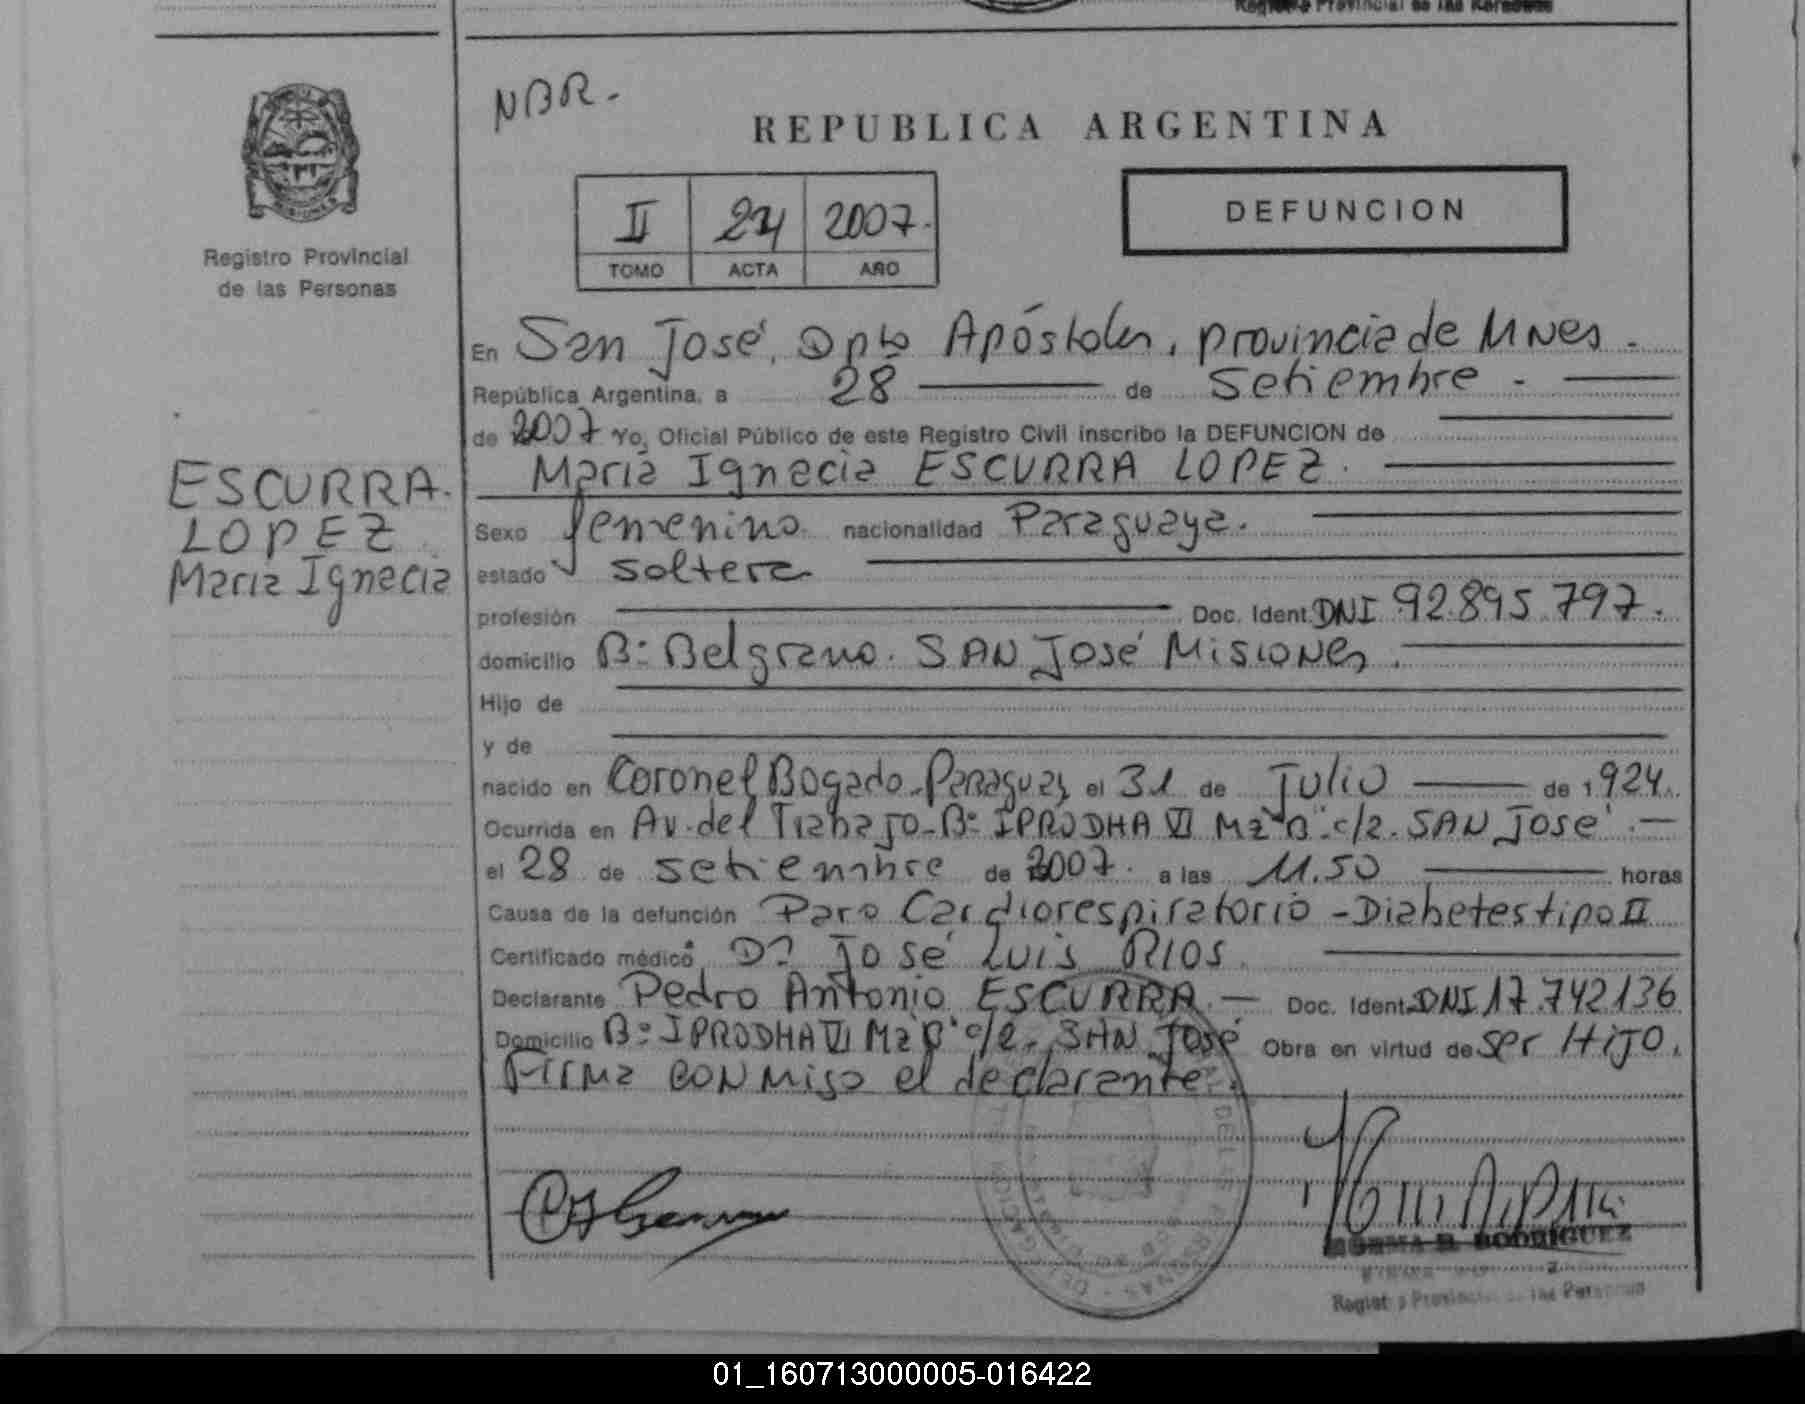 Registro Provincial de las Personas
NBR.
REPUBLICA ARGENTINA
II 24 2007.
TOMO ACTA AÑO
DEFUNCION
MISIONES
Registro Provincial
de las Personas
ESCURRA.
LOPEZ
Maria Ignacia
En San José, Dpto Apóstoles, provincia de MNes.
República Argentina, a 28 de Setiembre.
de 2007 Yo, Oficial Público de este Registro Civil inscribo la DEFUNCION de
Maria Ignacia ESCURRA LOPEZ.
Sexo femenino nacionalidad Paraguaya.
estado soltera
profesión Doc. Ident. DNI 92.895.797.
domicilio Bº Belgrano. SAN José Misiones.
Hijo de
y de
nacido en Coronel Bogado-Paraguay el 31 de Julio de 1924.
Ocurrida en Av. del Trabajo-Bº IPRODHA VI Mz "B" c/2. SAN José.
el 28 de setiembre de 2007. a las 11.50 horas
Causa de la defunción Paro Cardiorespiratorio - Diabetes tipo II
Certificado médico Dr José Luis RIOS.
Declarante Pedro Antonio ESCURRA. Doc. Ident. DNI 17.742.136
Domicilio Bº IPRODHA VI Mz "B" c/2. SAN José Obra en virtud de ser HiJO.
Firma CONMigo el declarante.
NORMA B. RODRIGUEZ
Registro Provincial de las Personas
01_160713000005-016422